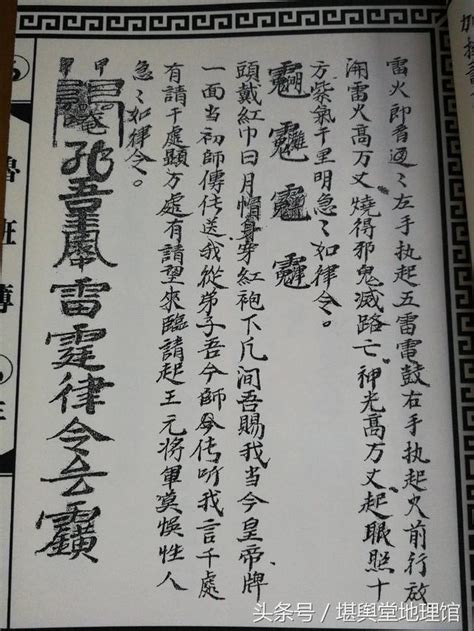 雷火即看過〻左手执起五雷電鼓右手执起火前行放
雷火高万丈燒得邪鬼滅路亡神光高万丈起眼照十
方紫氣千里明急〻如律令。
頭戴紅巾日月帽身穿紅袍下凡间吾賜我当今皇帝牌
一面当初師傳传送我從弟子吾今師令传听我言千處
有請千處顯方處有請望來臨請起王元将軍莫悞性人
急〻如律令。
吾 雷霆律令
魯班
头条号／堪舆堂地理馆